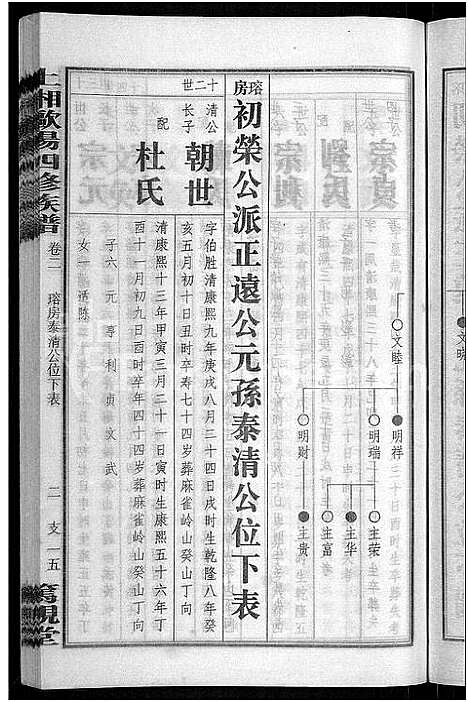 文睦
明祥
明瑞
明财
主荣
主华
主富
主贵
瑢房
初榮公派正遠公元孫泰清公位下表
十二世
清公长子
朝世
字伯胜清康熙九年庚戌八月二十四日戌时生乾隆八年癸
亥五月初十日丑时卒寿七十四岁葬麻雀岭山癸山丁向
配
杜氏
清康熙十三年甲寅三月二十一日寅时生康熙五十六年丁
酉十一月初九日酉时卒年四十四岁葬麻雀岭山癸山丁向
子六 元亨利贞文武
女一 适陈
上湘歐陽四修族譜
卷二
瑢房泰清公位下表
二 支 一五